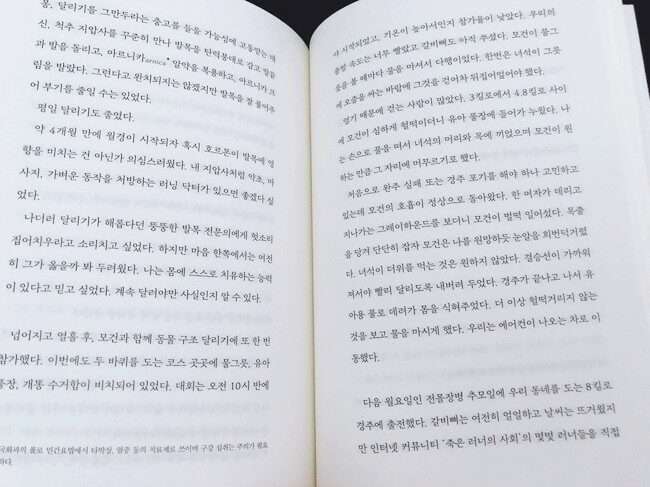 몽, 달리기를 그만두라는 충고를 들을 가능성에 고통받는 대
신, 척추 지압사를 꾸준히 만나 발목을 탄력붕대로 감고 발
과 발을 돌리고, 아르니카arnica* 알약을 복용하고, 아르니카 크
림을 발랐다. 그런다고 완치되지는 않겠지만 발목을 잘 풀어주
어 부기를 줄일 수는 있었다.
평일 달리기도 줄었다.
약 4개월 만에 월경이 시작되자 혹시 호르몬이 발목에 영
향을 미치는 건 아닌가 의심스러웠다. 내 지압사처럼 약초, 마
사지, 가벼운 동작을 처방하는 러닝 닥터가 있으면 좋겠다 싶
었다.
나더러 달리기가 해롭다던 뚱뚱한 발목 전문의에게 헛소리
집어치우라고 소리치고 싶었다. 하지만 마음 한쪽에서는 여전
히 그가 옳을까 봐 두려웠다. 나는 몸에 스스로 치유하는 능력
이 있다고 믿고 싶었다. 계속 달려야만 사실인지 알 수 있다.
넘어지고 열흘 후, 모건과 함께 동물 구조 달리기에 또 한 번
참가했다. 이번에도 두 바퀴를 도는 코스 곳곳에 물그릇, 유아
풀장, 개똥 수거함이 비치되어 있었다. 대회는 오전 10시 반에
국화과의 풀로 민간요법에서 타박상, 염증 등의 치료제로 쓰이며 구강 섭취는 주의가 필요
하다.
야 시작되었고, 기온이 높아서인지 참가율이 낮았다. 우리의
출발 속도는 너무 빨랐고 갈비뼈도 아직 쑤셨다. 모건이 물그
릇을 볼 때마다 물을 마셔서 다행이었다. 한번은 녀석이 그릇
에 오줌을 싸는 바람에 그것을 걷어차 뒤집어엎어야 했다.
열기 때문에 걷는 사람이 많았다. 3킬로에서 4.8킬로 사이
에 모건이 심하게 헐떡이더니 유아 풀장에 들어가 누웠다. 나
는 손으로 물을 떠서 녀석의 머리와 목에 끼얹으며 모건이 원
하는 만큼 그 자리에 머무르기로 했다.
처음으로 완주 실패 또는 경주 포기를 해야 하나 고민하고
있는데 모건의 호흡이 정상으로 돌아왔다. 한 여자가 데리고
지나가는 그레이하운드를 보더니 모건이 벌떡 일어섰다. 목줄
을 당겨 단단히 잡자 모건은 나를 원망하듯 눈알을 희번덕거렸
다. 녀석이 더위를 먹는 것은 원하지 않았다. 결승선이 가까워
져서야 빨리 달리도록 내버려 두었다. 경주가 끝나고 나서 유
아용 풀로 데려가 몸을 식혀주었다. 더 이상 헐떡거리지 않는
것을 보고 물을 마시게 했다. 우리는 에어컨이 나오는 차로 이
동했다.
다음 월요일인 전몰장병 추모일에 우리 동네를 도는 8킬로
경주에 출전했다. 갈비뼈는 여전히 얼얼하고 날씨는 뜨거웠지
만 인터넷 커뮤니티 '죽은 러너의 사회'의 몇몇 러너들을 직접